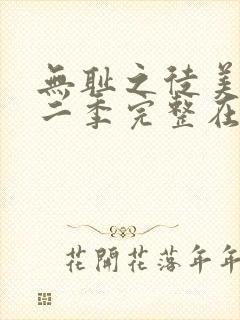 無耻之徒美
二季完整在
花開花落年年